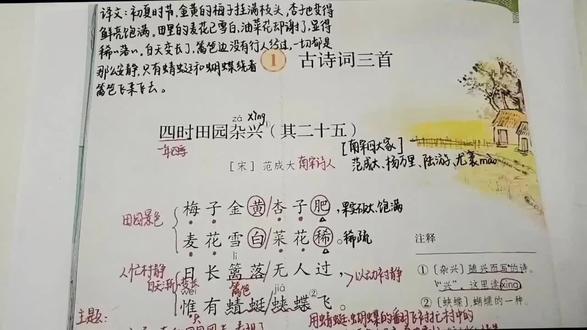 译文：初夏时节，金黄的梅子挂满枝头，杏子也变得
鲜亮饱满，田里的麦花已雪白，油菜花却谢了，显得
稀稀落落，白天变长了，篱笆边没有行人经过，一切都是
那么安静，只有蜻蜓和蝴蝶绕着
篱笆飞来飞去。
1 古诗词三首
zá xìng
四时田园杂兴（其二十五）
一年四季
[南宋四大家]
范成大、杨万里、陆游、尤袤mào
[宋] 范成大 南宋诗人
田园景色
梅子金黄/杏子肥，果实硕大、饱满
麦花雪白/菜花稀。稀疏
人忙村静
白天渐长
lí
日长篱落/无人过，
篱笆
以动衬静
jiá
惟有蜻蜓/蛱蝶②飞。
只
注释
①〔杂兴〕随兴而写的诗。
“兴”，这里读xìng
②〔蛱蝶〕蝴蝶的一种。
主题：